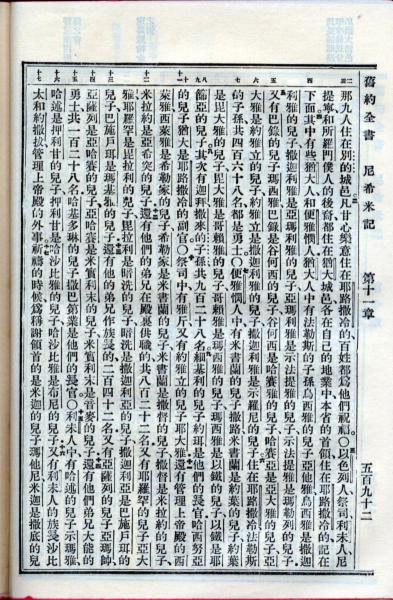 舊約全書 尼希米記 第十一章 五百九十二
那九人住在別的城邑凡甘心樂意住在耶路撒冷的百姓都爲他們祝福〇以色列人祭司利未人尼
提寧和所羅門僕人的後裔都住在猶大城邑各在自己的地業中本省的首領住在耶路撒冷的記在
下面其中有些猶大人和便雅憫人猶大人中有法勒斯的子孫烏西雅的兒子亞他雅烏西雅是撒迦
利雅的兒子撒迦利雅是亞瑪利雅的兒子亞瑪利雅是示法提雅的兒子示法提雅是瑪勒列的兒子
又有巴錄的兒子瑪西雅巴錄是谷何西的兒子谷何西是哈賽雅的兒子哈賽亞是亞大雅的兒子亞
大雅是約雅立的兒子約雅立是撒迦利雅的兒子撒迦利雅是示羅尼的兒子住在耶路撒冷法勒斯
的子孫共四百六十八名都是勇士〇便雅憫人中有米書蘭的兒子撒路米書蘭是約葉的兒子約葉
是毘大雅的兒子毘大雅是哥賴雅的兒子哥賴雅是瑪西雅的兒子瑪西雅是以鐵的兒子以鐵是耶
篩亞的兒子其次有迦拜撒來的子孫共九百二十八名細基利的兒子約珥是他們的長官哈西努亞
的兒子猶大是耶路撒冷的副官〇祭司中有雅斤又有約雅立的兒子耶大雅還有管理上帝殿的西
萊雅西萊雅是希勒家的兒子希勒家是米書蘭的兒子米書蘭是撒督的兒子撒督是米拉約的兒子
米拉約是亞希突的兒子還有他們的弟兄在殿裏供職的共八百二十二名又有耶羅罕的兒子亞大
雅耶羅罕是毘拉利的兒子毘拉利是暗洗的兒子暗洗是撒迦利亞的兒子撒迦利亞是巴施戶珥的
兒子巴施戶珥是瑪基雅的兒子還有他的弟兄作族長的二百四十二名又有亞薩列的兒子亞瑪帥
亞薩列是亞哈賽的兒子亞哈賽是米實利末的兒子米實利末是音麥的兒子還有他們弟兄大能的
勇士共一百二十八名哈基多琳的兒子撒巴第業是他們的長官〇利未人中有哈述的兒子示瑪雅
哈述是押利甘的兒子押利甘是哈沙比雅的兒子哈沙比雅是布尼的兒子又有利未人的族長沙比
太和約撒拔管理上帝殿的外事祈禱的時候爲稱謝領首的是米迦的兒子瑪他尼米迦是撒底的兒